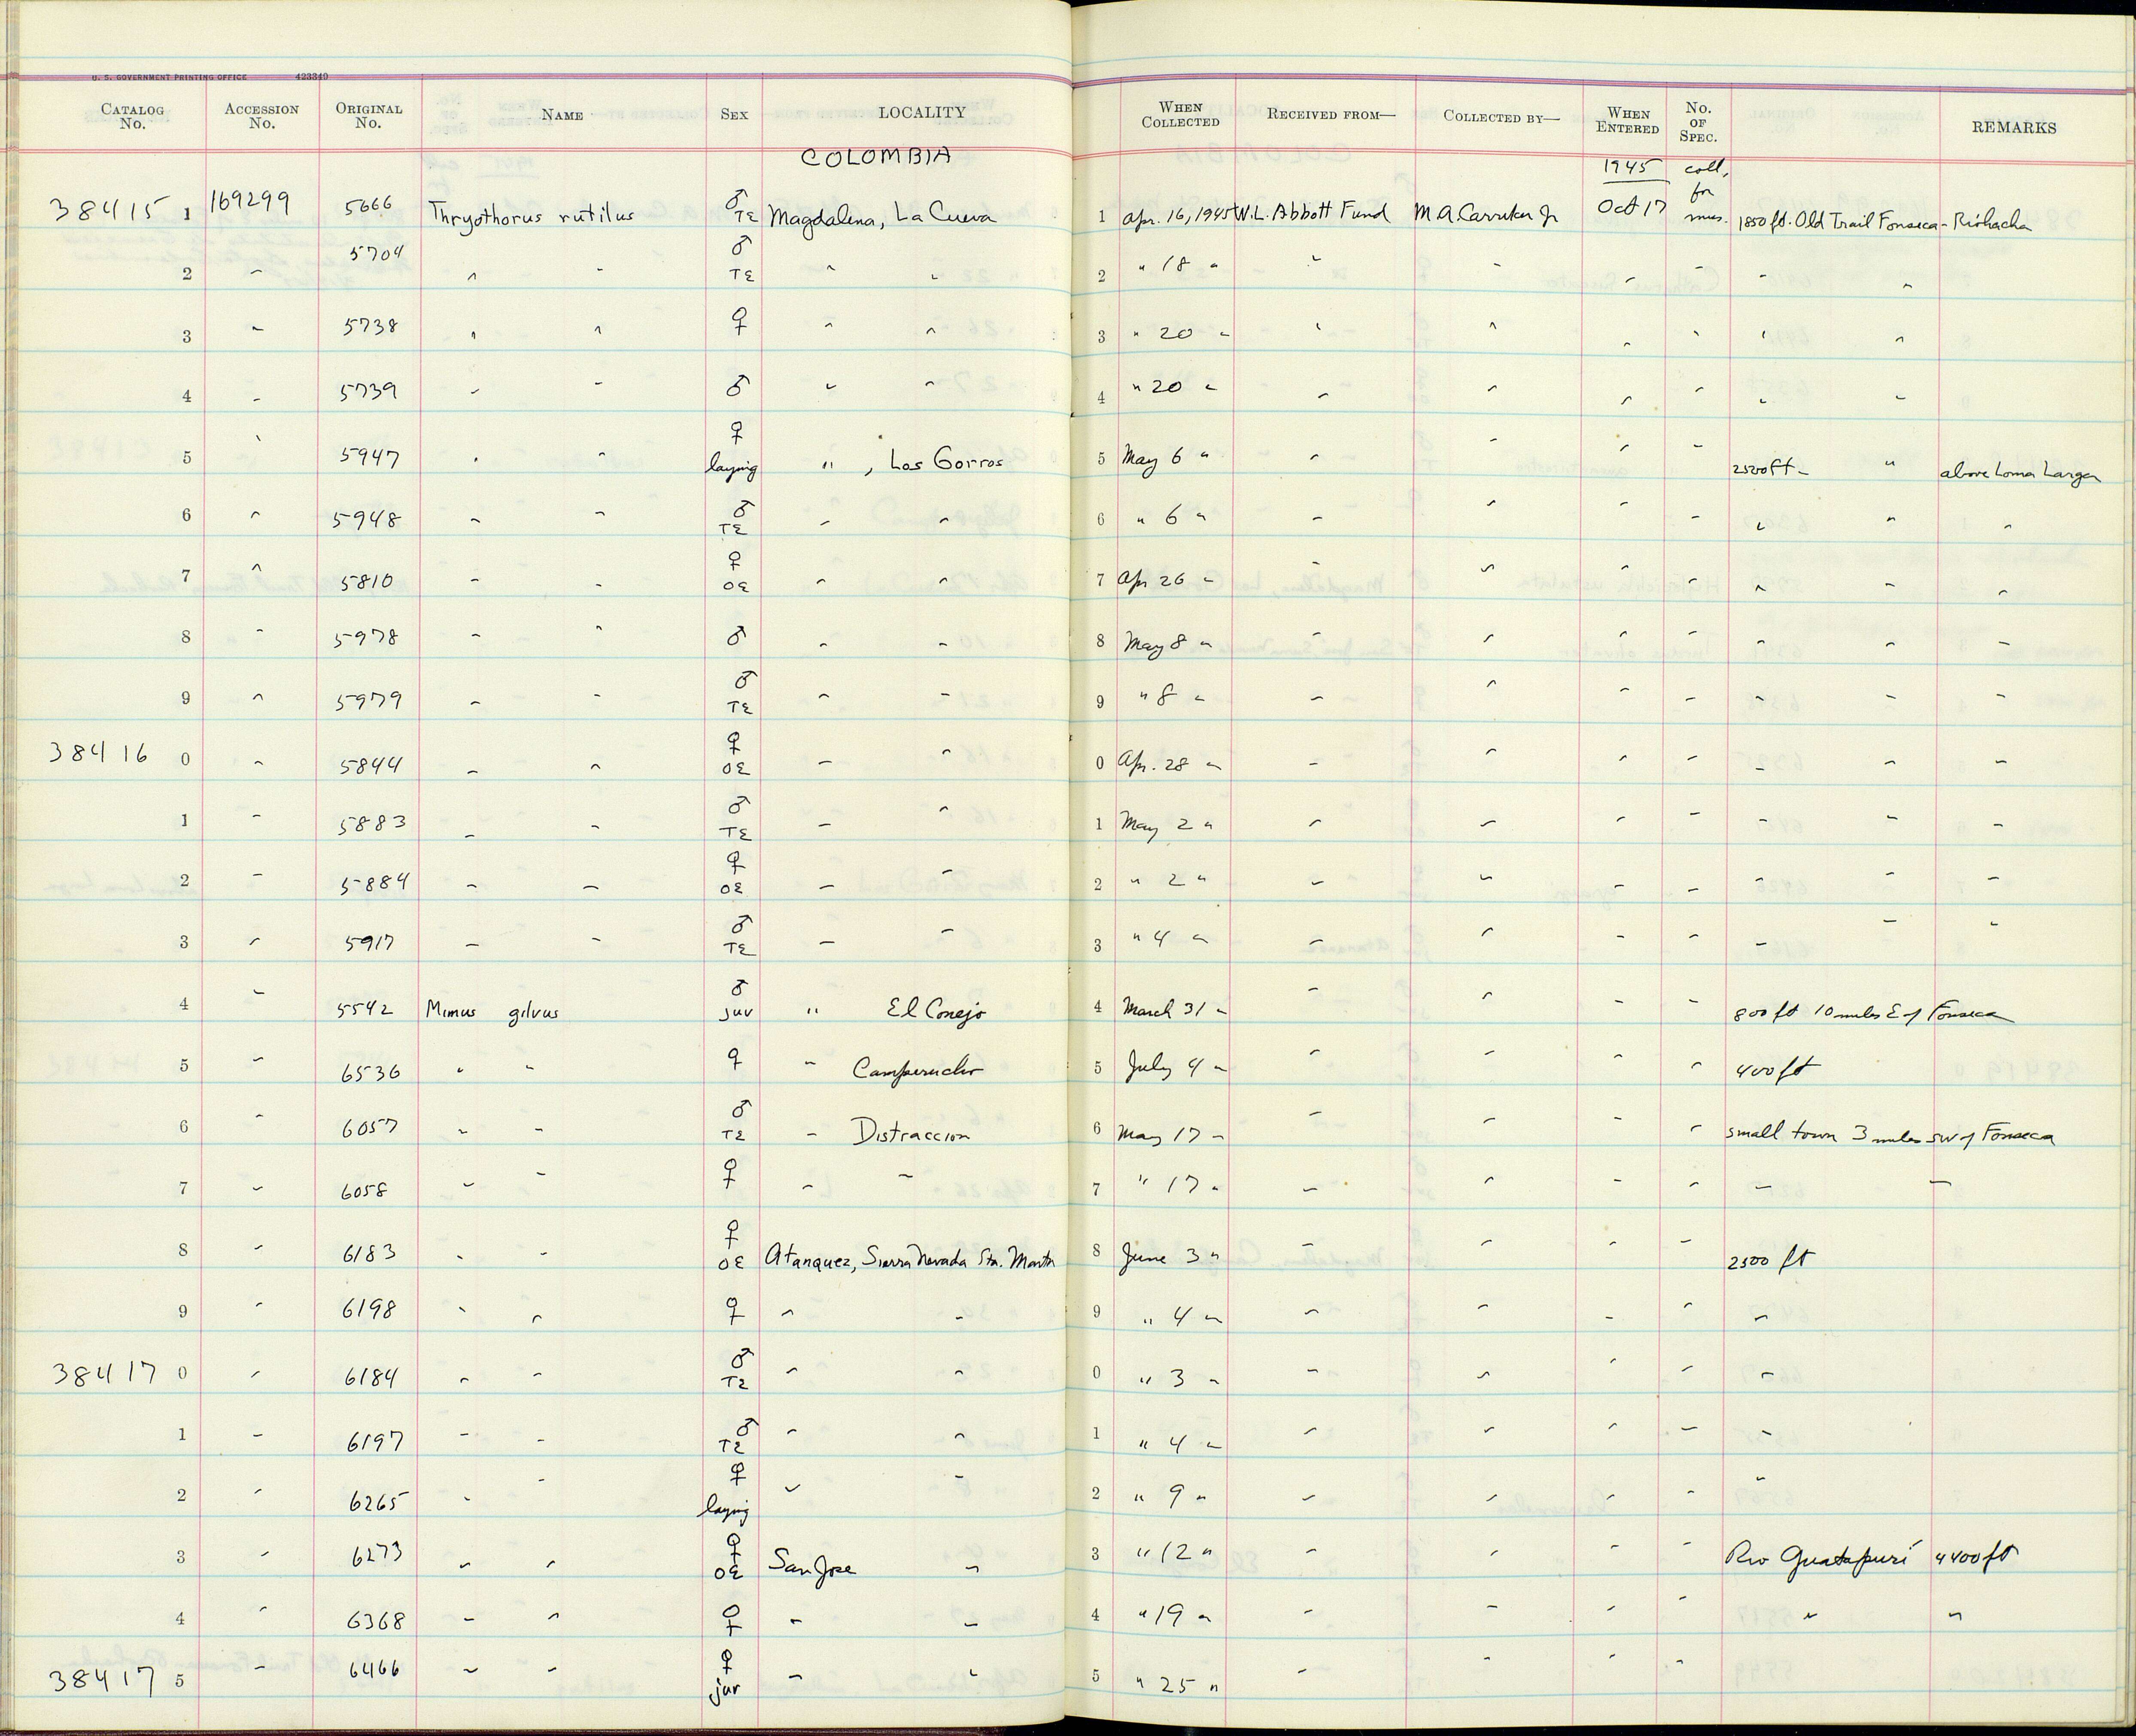 U. S. GOVERNMENT PRINTING OFFICE 423349
CATALOG No. ACCESSION No. ORIGINAL No. NAME SEX LOCALITY WHEN COLLECTED RECEIVED FROM— COLLECTED BY— WHEN ENTERED No. OF SPEC. REMARKS
COLOMBIA 1945 coll. for mus.
38415 1 169299 5666 Thryothorus rutilus ♂ TE Magdalena, La Cueva 1 Apr. 16, 1945 W.L. Abbott Fund M.A. Carriker Jr Oct 17 1850 ft. Old Trail Fonseca - Riohacha
2 " 5704 " " ♂ TE " " 2 " 18 " " " " " " "
3 " 5738 " " ♀ " " 3 " 20 " " " " " " "
4 " 5739 " " ♂ " " 4 " 20 " " " " " " "
5 " 5947 " " ♀ laying " , Los Gorros 5 May 6 " " " " " 2500 ft - " above Loma Larga
6 " 5948 " " ♂ TE " " 6 " 6 " " " " " " " "
7 " 5810 " " ♀ OE " " 7 Apr 26 " " " " " " " "
8 " 5978 " " ♂ " " 8 May 8 " " " " " " " "
9 " 5979 " " ♂ TE " " 9 " 8 " " " " " " " "
38416 0 " 5844 " " ♀ OE " " 0 Apr. 28 " " " " " " " "
1 " 5883 " " ♂ TE " " 1 May 2 " " " " " " " "
2 " 5884 " " ♀ OE " " 2 " 2 " " " " " " " "
3 " 5917 " " ♂ TE " " 3 " 4 " " " " " " " "
4 " 5542 Mimus gilvus ♂ juv " El Conejo 4 March 31 " " " " " 800 ft 10 miles E of Fonseca
5 " 6536 " " ♀ " Camperucho 5 July 4 " " " " " 400 ft
6 " 6057 " " ♂ TE " Distraccion 6 May 17 " " " " " small town 3 miles SW of Fonseca
7 " 6058 " " ♀ " " 7 " 17 " " " " " " "
8 " 6183 " " ♀ OE Atanquez, Sierra Nevada Sta. Marta 8 June 3 " " " " " 2500 ft
9 " 6198 " " ♀ " " 9 " 4 " " " " " "
38417 0 " 6184 " " ♂ TE " " 0 " 3 " " " " " "
1 " 6197 " " ♂ TE " " 1 " 4 " " " " " "
2 " 6265 " " ♀ laying " " 2 " 9 " " " " " "
3 " 6273 " " ♀ OE San Jose " 3 " 12 " " " " " Rio Guatapuri 4400 ft
4 " 6368 " " ♀ " " 4 " 19 " " " " " " "
38417 5 " 6466 " " ♀ juv " " 5 " 25 " " " " "